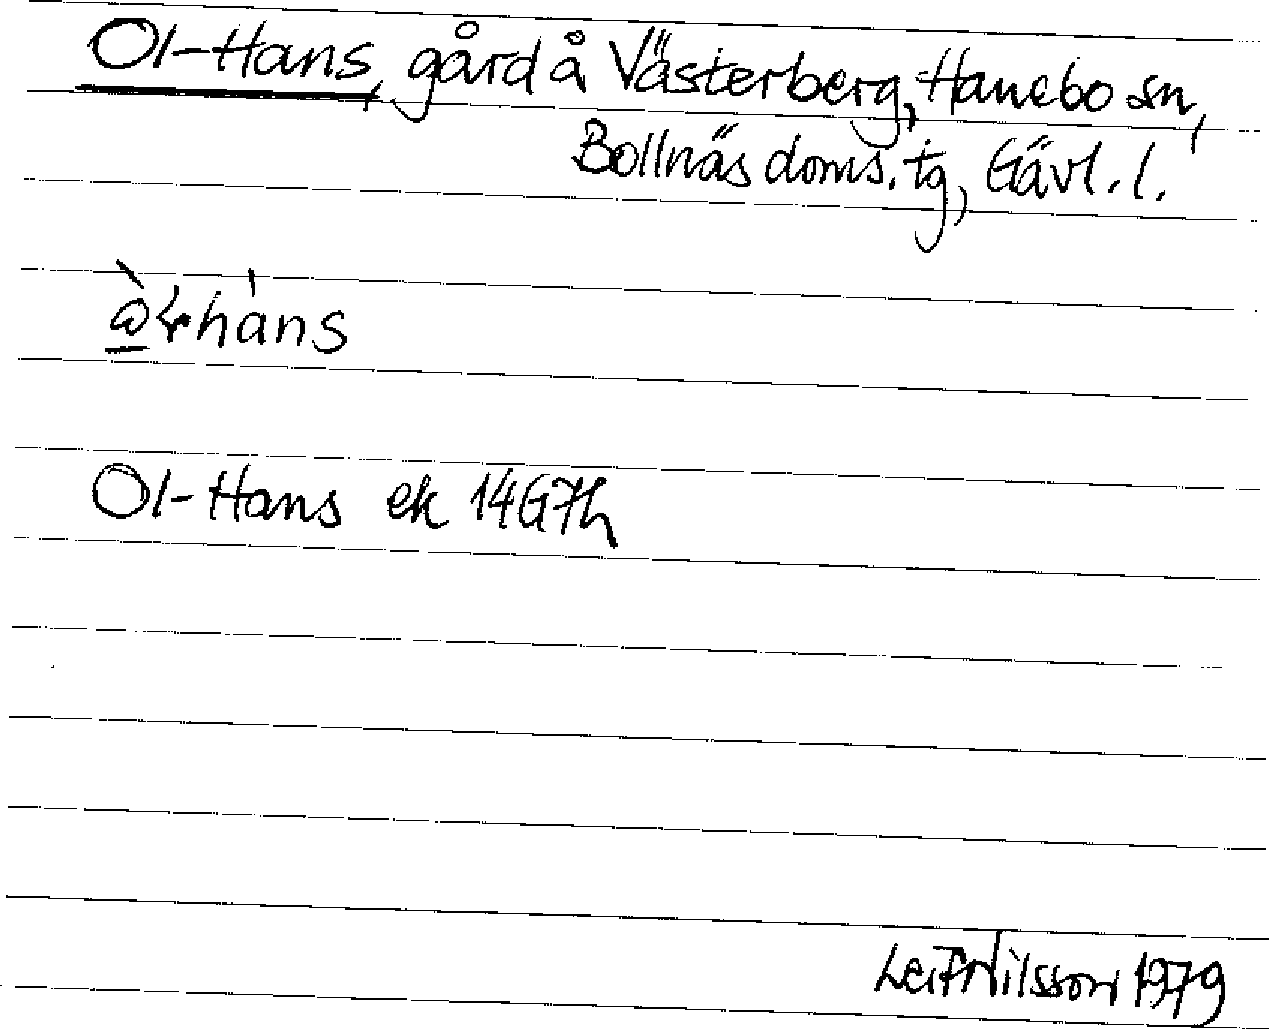 Ol-Hans, gård å Västerberg, Hanebo sn,
Bollnäs doms. tg, Gävl. l.
Ol-Hans ek 14G7h
Leif Nilsson 1979